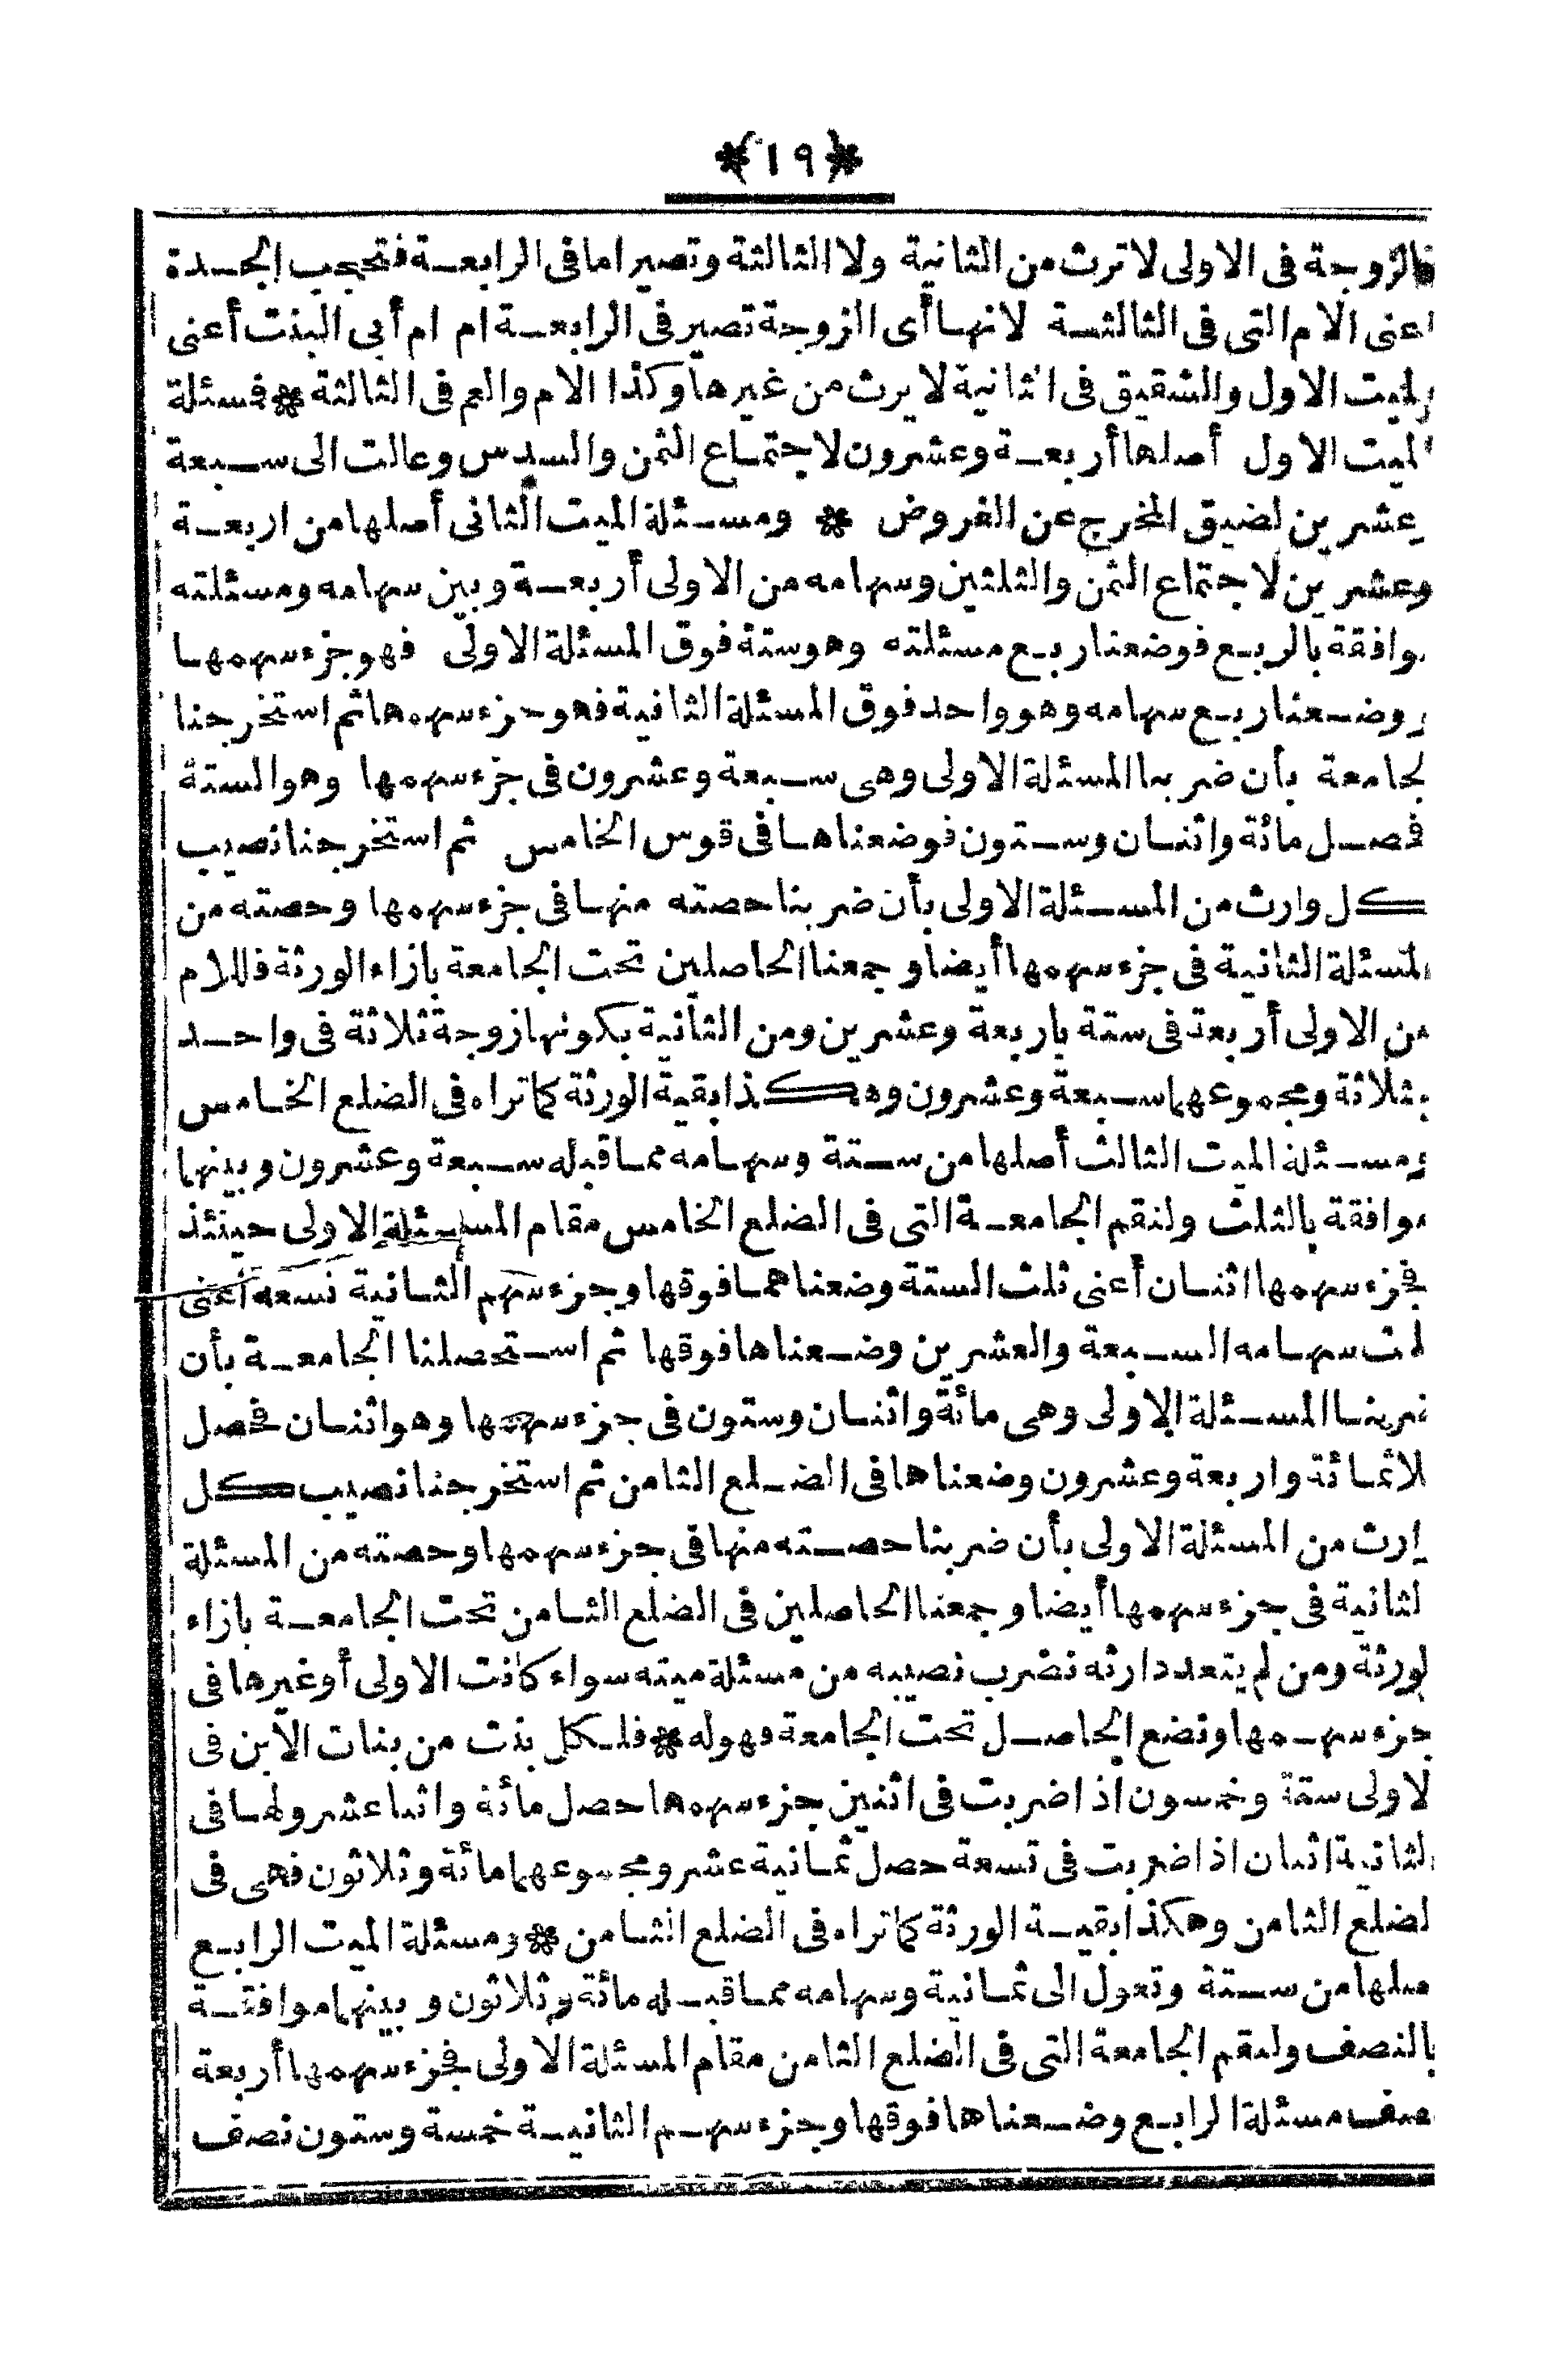 ❊(١٩)❊
فالزوجة فى الاولى لاترث من الثانية ولا الثالثة وتصير اما فى الرابعة فتحجب الجدة
اعنى الام التى فى الثالثة لانها أى الزوجة تصير فى الرابعة ام ام أبى البنت أعنى
الميت الاول والشقيق فى الثانية لايرث من غيرها وكذا الام والعم فى الثالثة ❊ فمسئلة
الميت الاول أصلها أربعة وعشرون لاجتماع الثمن والسدس وعالت الى سبعة
عشرين لضيق المخرج عن الفروض ❊ ومسئلة الميت الثانى أصلها من اربعة
وعشرين لاجتماع الثمن والثلثين وسهامه من الاولى أربعة وبين سهامه ومسئلته
موافقة بالربع فوضعنا ربع مسئلته وهو ستة فوق المسئلة الاولى فهو جزء سهمها
ووضعنا ربع سهامه وهو واحد فوق المسئلة الثانية فهو جزء سهمها ثم استخرجنا
لجامعة بأن ضربنا المسئلة الاولى وهى سبعة وعشرون فى جزء سهمها وهو الستة
فحصل مائة واثنان وستون فوضعناها فى قوس الخامس ثم استخرجنا نصيب
كل وارث من المسئلة الاولى بأن ضربنا حصته منها فى جزء سهمها وحصته من
المسئلة الثانية فى جزء سهمها أيضا وجمعنا الحاصلين تحت الجامعة بازاء الورثة فللام
من الاولى أربعة فى ستة باربعة وعشرين ومن الثانية بكونها زوجة ثلاثة فى واحد
بثلاثة ومجموعهما سبعة وعشرون وهكذا بقية الورثة كما تراه فى الضلع الخامس
ومسئلة الميت الثالث أصلها من ستة وسهامه مما قبله سبعة وعشرون وبينهما
موافقة بالثلث ولنقم الجامعة التى فى الضلع الخامس مقام المسئلة الاولى حينئذ
فجزء سهمها اثنان أعنى ثلث الستة وضعناهما فوقها وجزء سهم الثانية تسعة أعنى
لث سهامه السبعة والعشرين وضعناها فوقها ثم استحصلنا الجامعة بأن
ضربنا المسئلة الاولى وهى مائة واثنان وستون فى جزء سهمها وهو اثنان فحصل
لاثمائة واربعة وعشرون وضعناها فى الضلع الثامن ثم استخرجنا نصيب كل
ارث من المسئلة الاولى بأن ضربنا حصته منها فى جزء سهمها وحصته من المسئلة
لثانية فى جزء سهمها أيضا وجمعنا الحاصلين فى الضلع الثامن تحت الجامعة بازاء
لورثة ومن لم يتعدد ارثه نضرب نصيبه من مسئلة ميته سواء كانت الاولى أو غيرها فى
جزء سهمها ونضع الحاصل تحت الجامعة فهو له ❊ فلكل بنت من بنات الابن فى
لاولى ستة وخمسون اذا ضربت فى اثنين جزء سهمها حصل مائة واثنا عشر ولها فى
الثانية اثنان اذا ضربت فى تسعة حصل ثمانية عشر ومجموعهما مائة وثلاثون فهى فى
لضلع الثامن وهكذا بقية الورثة كما تراه فى الضلع الثامن ❊ ومسئلة الميت الرابع
صلها من ستة وتعول الى ثمانية وسهامه مما قبله مائة وثلاثون وبينهما موافقة
بالنصف ولنقم الجامعة التى فى الضلع الثامن مقام المسئلة الاولى فجزء سهمها أربعة
نصف مسئلة الرابع وضعناها فوقها وجزء سهم الثانية خمسة وستون نصف